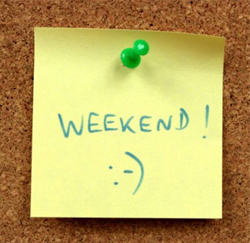 WEEKEND!
:-)